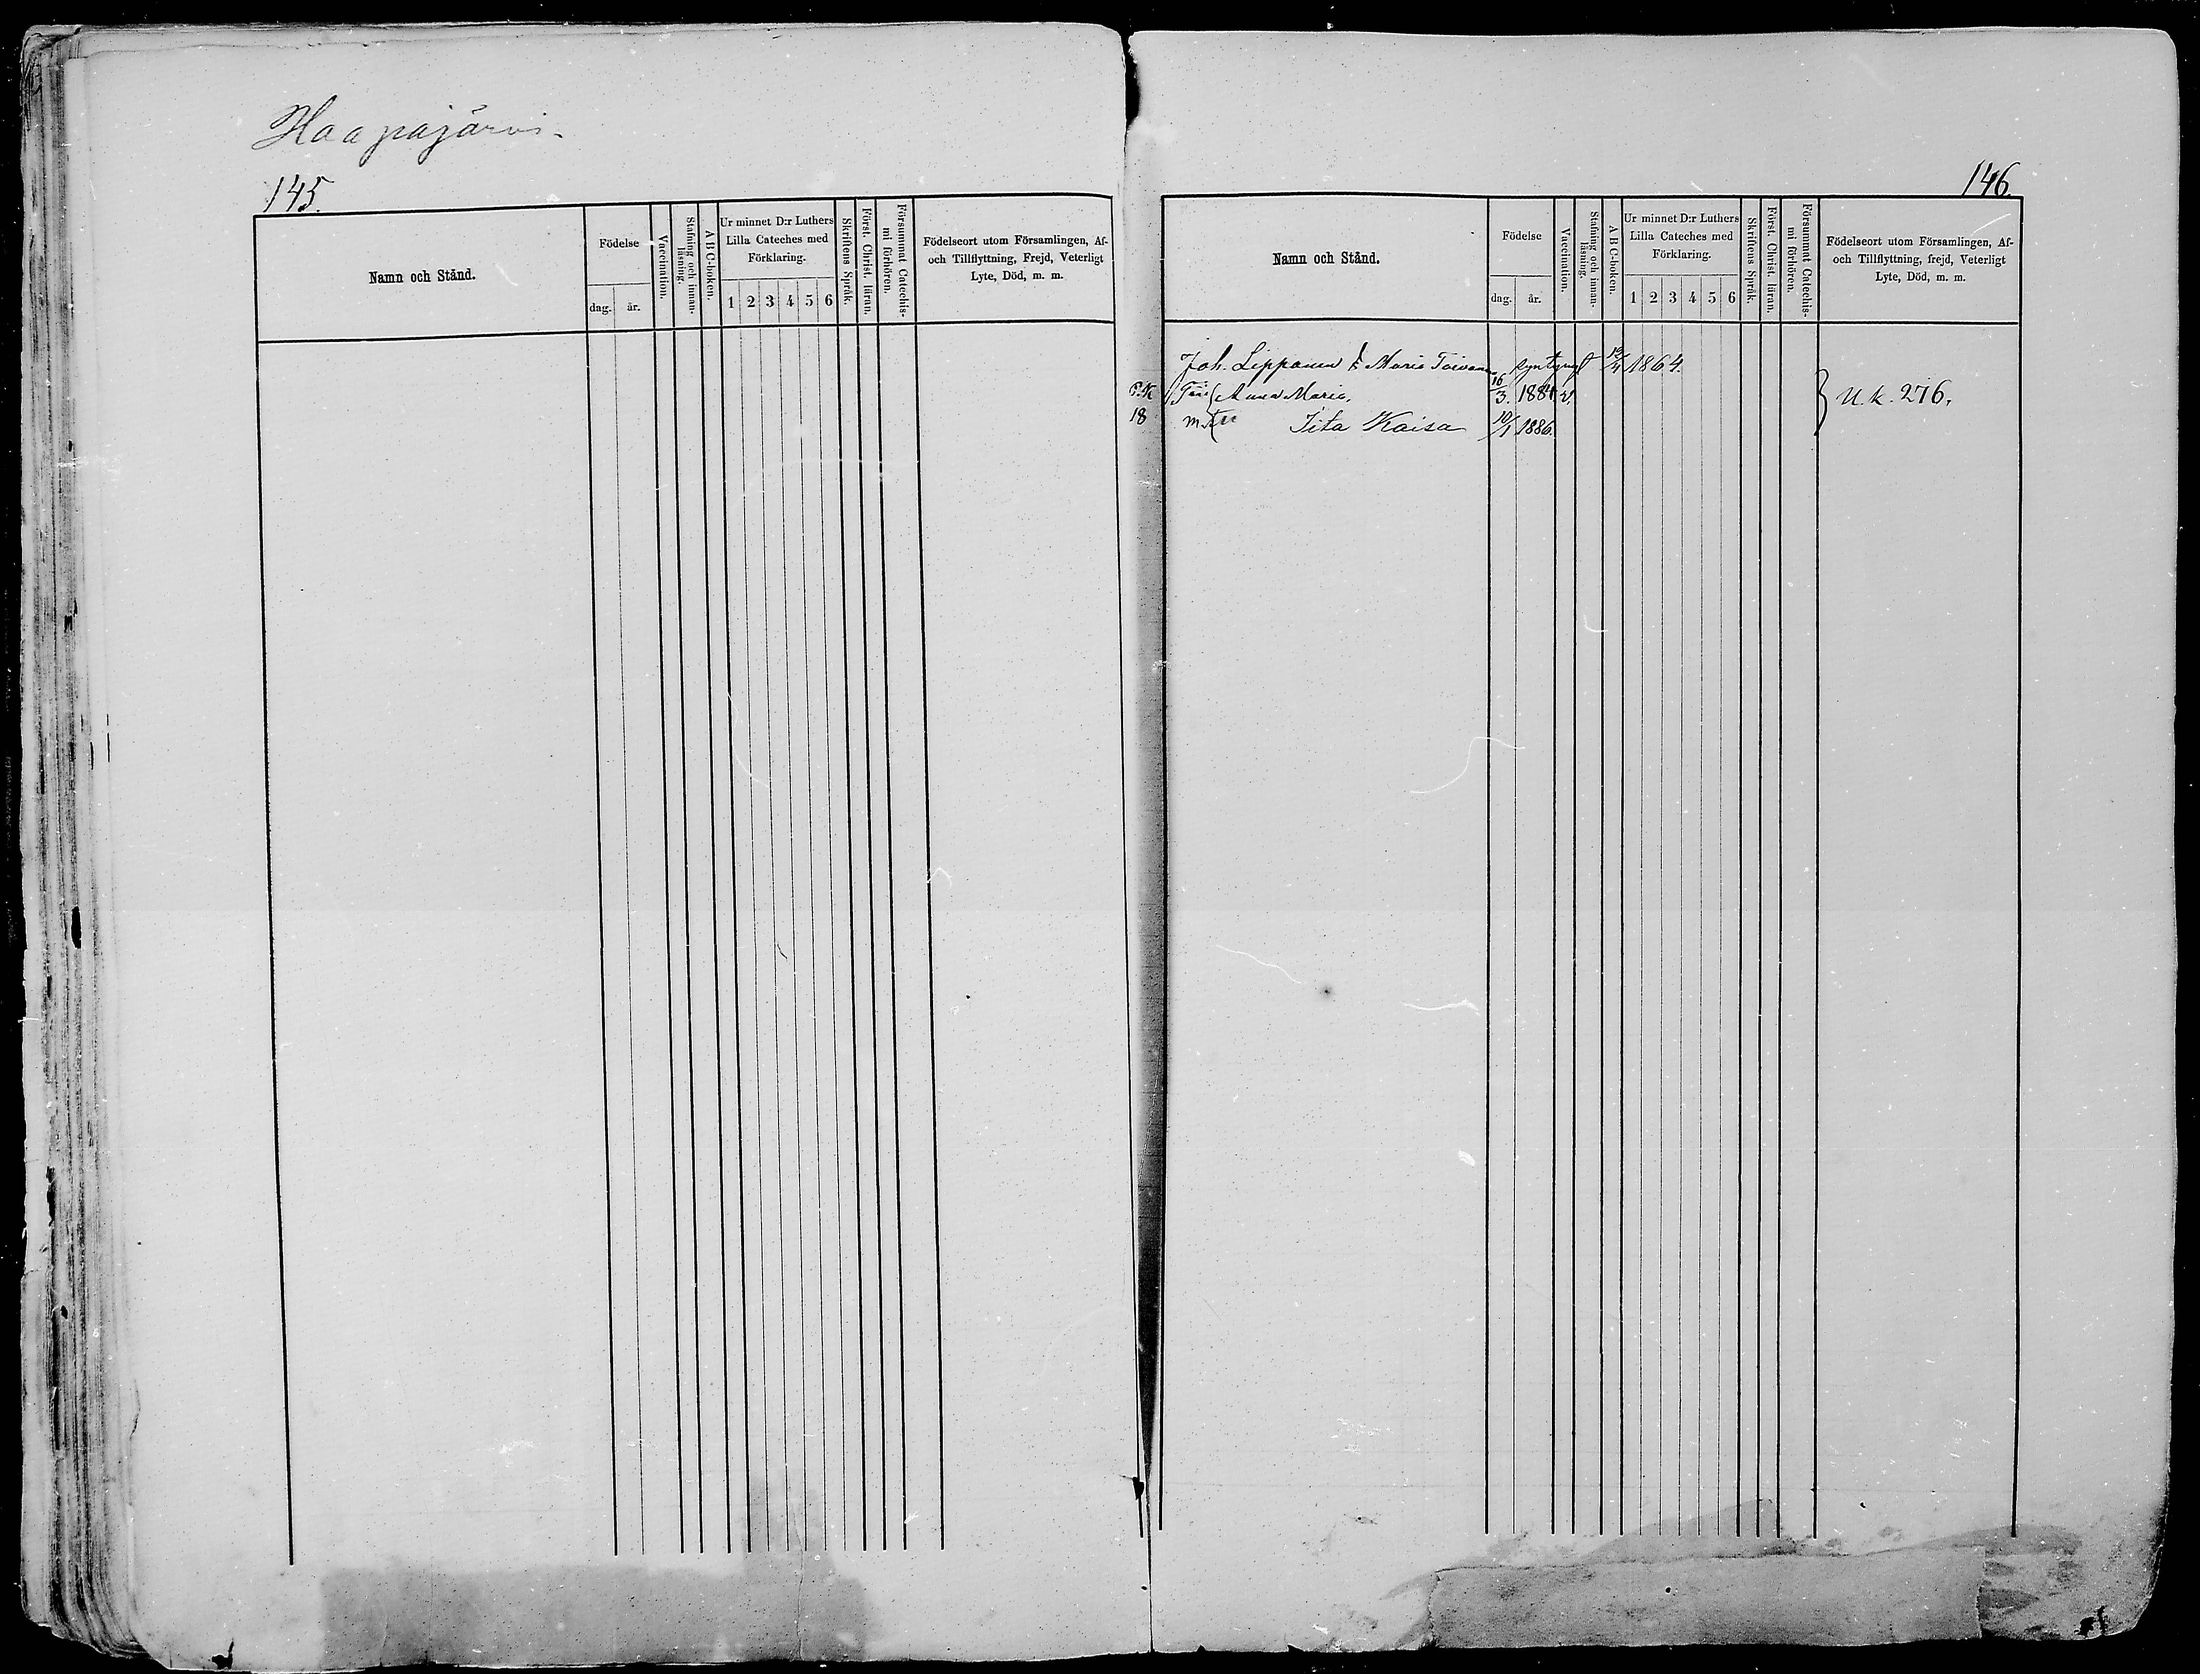 Haapajärvi.
145.
Namn och Stånd.
Födelse
dag.
år.
Vaccination.
Stafning och innan-
läsning.
A B C-boken.
Ur minnet D:r Luthers
Lilla Cateches med
Förklaring.
1 2 3 4 5 6
Skriftens Språk.
Först. Christ. läran.
Försummat Catechis-
mi förhören.
Födelseort utom Församlingen, Af-
och Tillflyttning, Frejd, Veterligt
Lyte, Död, m. m.
146.
Namn och Stånd.
Födelse
dag.
år.
Vaccination.
Stafning och innan-
läsning.
A B C-boken.
Ur minnet D:r Luthers
Lilla Cateches med
Förklaring.
1 2 3 4 5 6
Skriftens Språk.
Först. Christ. läran.
Försummat Catechis-
mi förhören.
Födelseort utom Församlingen, Af-
och Tillflyttning, frejd, Veterligt
Lyte, Död, m. m.
Joh. Lipponen Maria Toivanen 1864.
P.K. Anna Maria. 16/3. 1884 v. U.k. 276.
18 Iita Kaisa 10/1 1886.